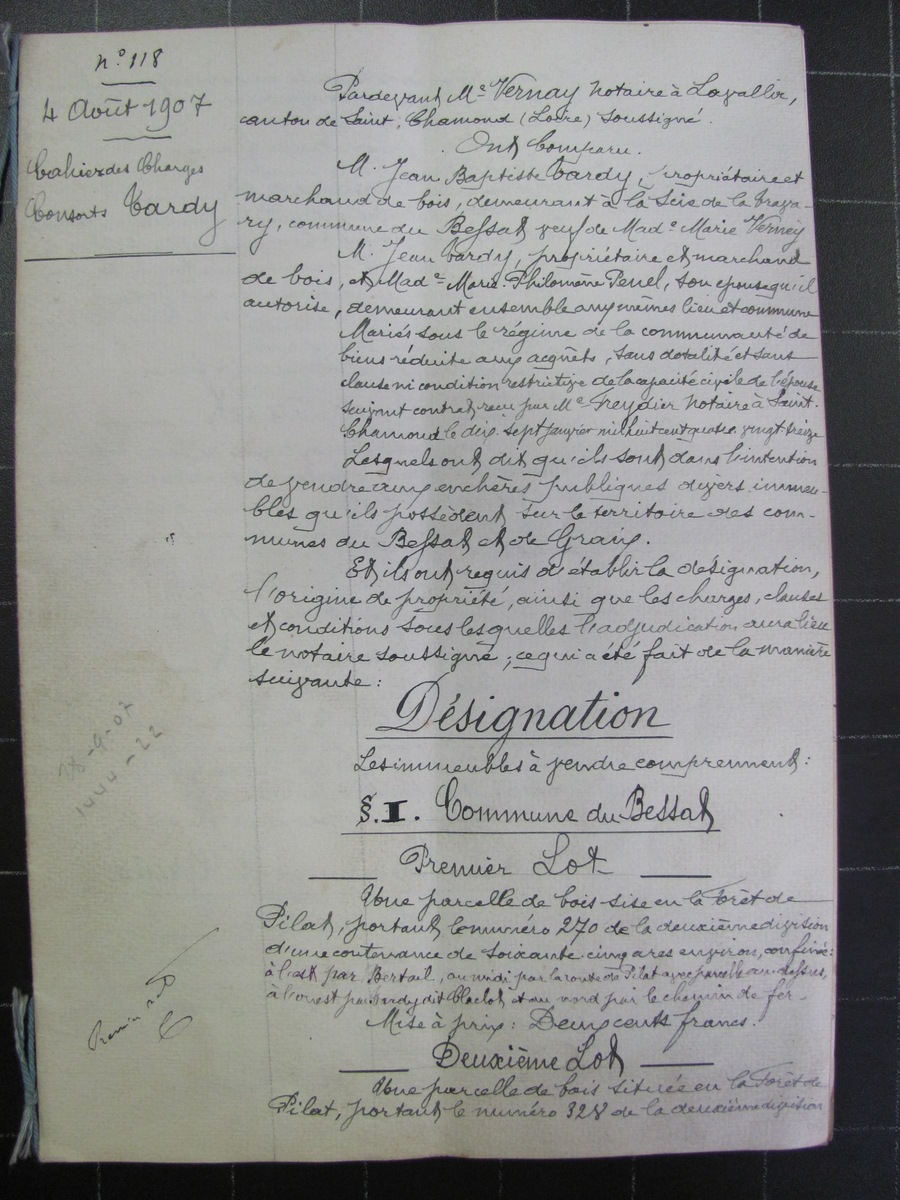 n.° 118
4 Août 1907
Cahier des Charges
Consorts Tardy
Pardevant Me Vernay notaire à Lavalla,
canton de Saint-Chamond (Loire) soussigné.
Ont Comparu.
M. Jean Baptiste Tardy, propriétaire et
marchand de bois, demeurant à la Scie de la
ry, commune du Bessat veuf de Made Marie Verney
M. Jean Tardy, propriétaire et marchand
de bois, et Made Marie Philomène Penel, son épouse qu'il
autorise, demeurant ensemble aux mêmes lieu et commune
Mariés sous le régime de la communauté de
biens réduite aux acquêts, sans dotalité et sans
clause ni condition restrictive de la capacité civile de l'épouse
suivant contrat reçu par Me Freydier notaire à Saint-
Chamond le dix-sept janvier mil huit cent quatre-vingt-treize
Lesquels ont dit qu'ils sont dans l'intention
de vendre aux enchères publiques divers immeu-
bles qu'ils possèdent sur le territoire des com-
munes du Bessat et de Graix.
Et ils ont requis d'établir la désignation,
l'origine de propriété, ainsi que les charges, clauses
et conditions sous lesquelles l'adjudication aura lieu
le notaire soussigné ; ce qui a été fait de la manière
suivante :
Désignation
Les immeubles à vendre comprennent :
§. I. Commune du Bessat
Premier Lot
Une parcelle de bois sise en la Forêt de
Pilat, portant le numéro 270 de la deuxième division
d'une contenance de soixante-cinq ares environ, confiné:
à l'est par Bertail, au midi par la route de Pilat avec parcelle au-dessus,
à l'ouest par Tardy dit et au nord par le chemin de fer.
Mise à prix : Deux cents francs.
Deuxième Lot
Une parcelle de bois située en la Forêt de
Pilat, portant le numéro 328 de la deuxième division
28-9-07
1444-22
Premier